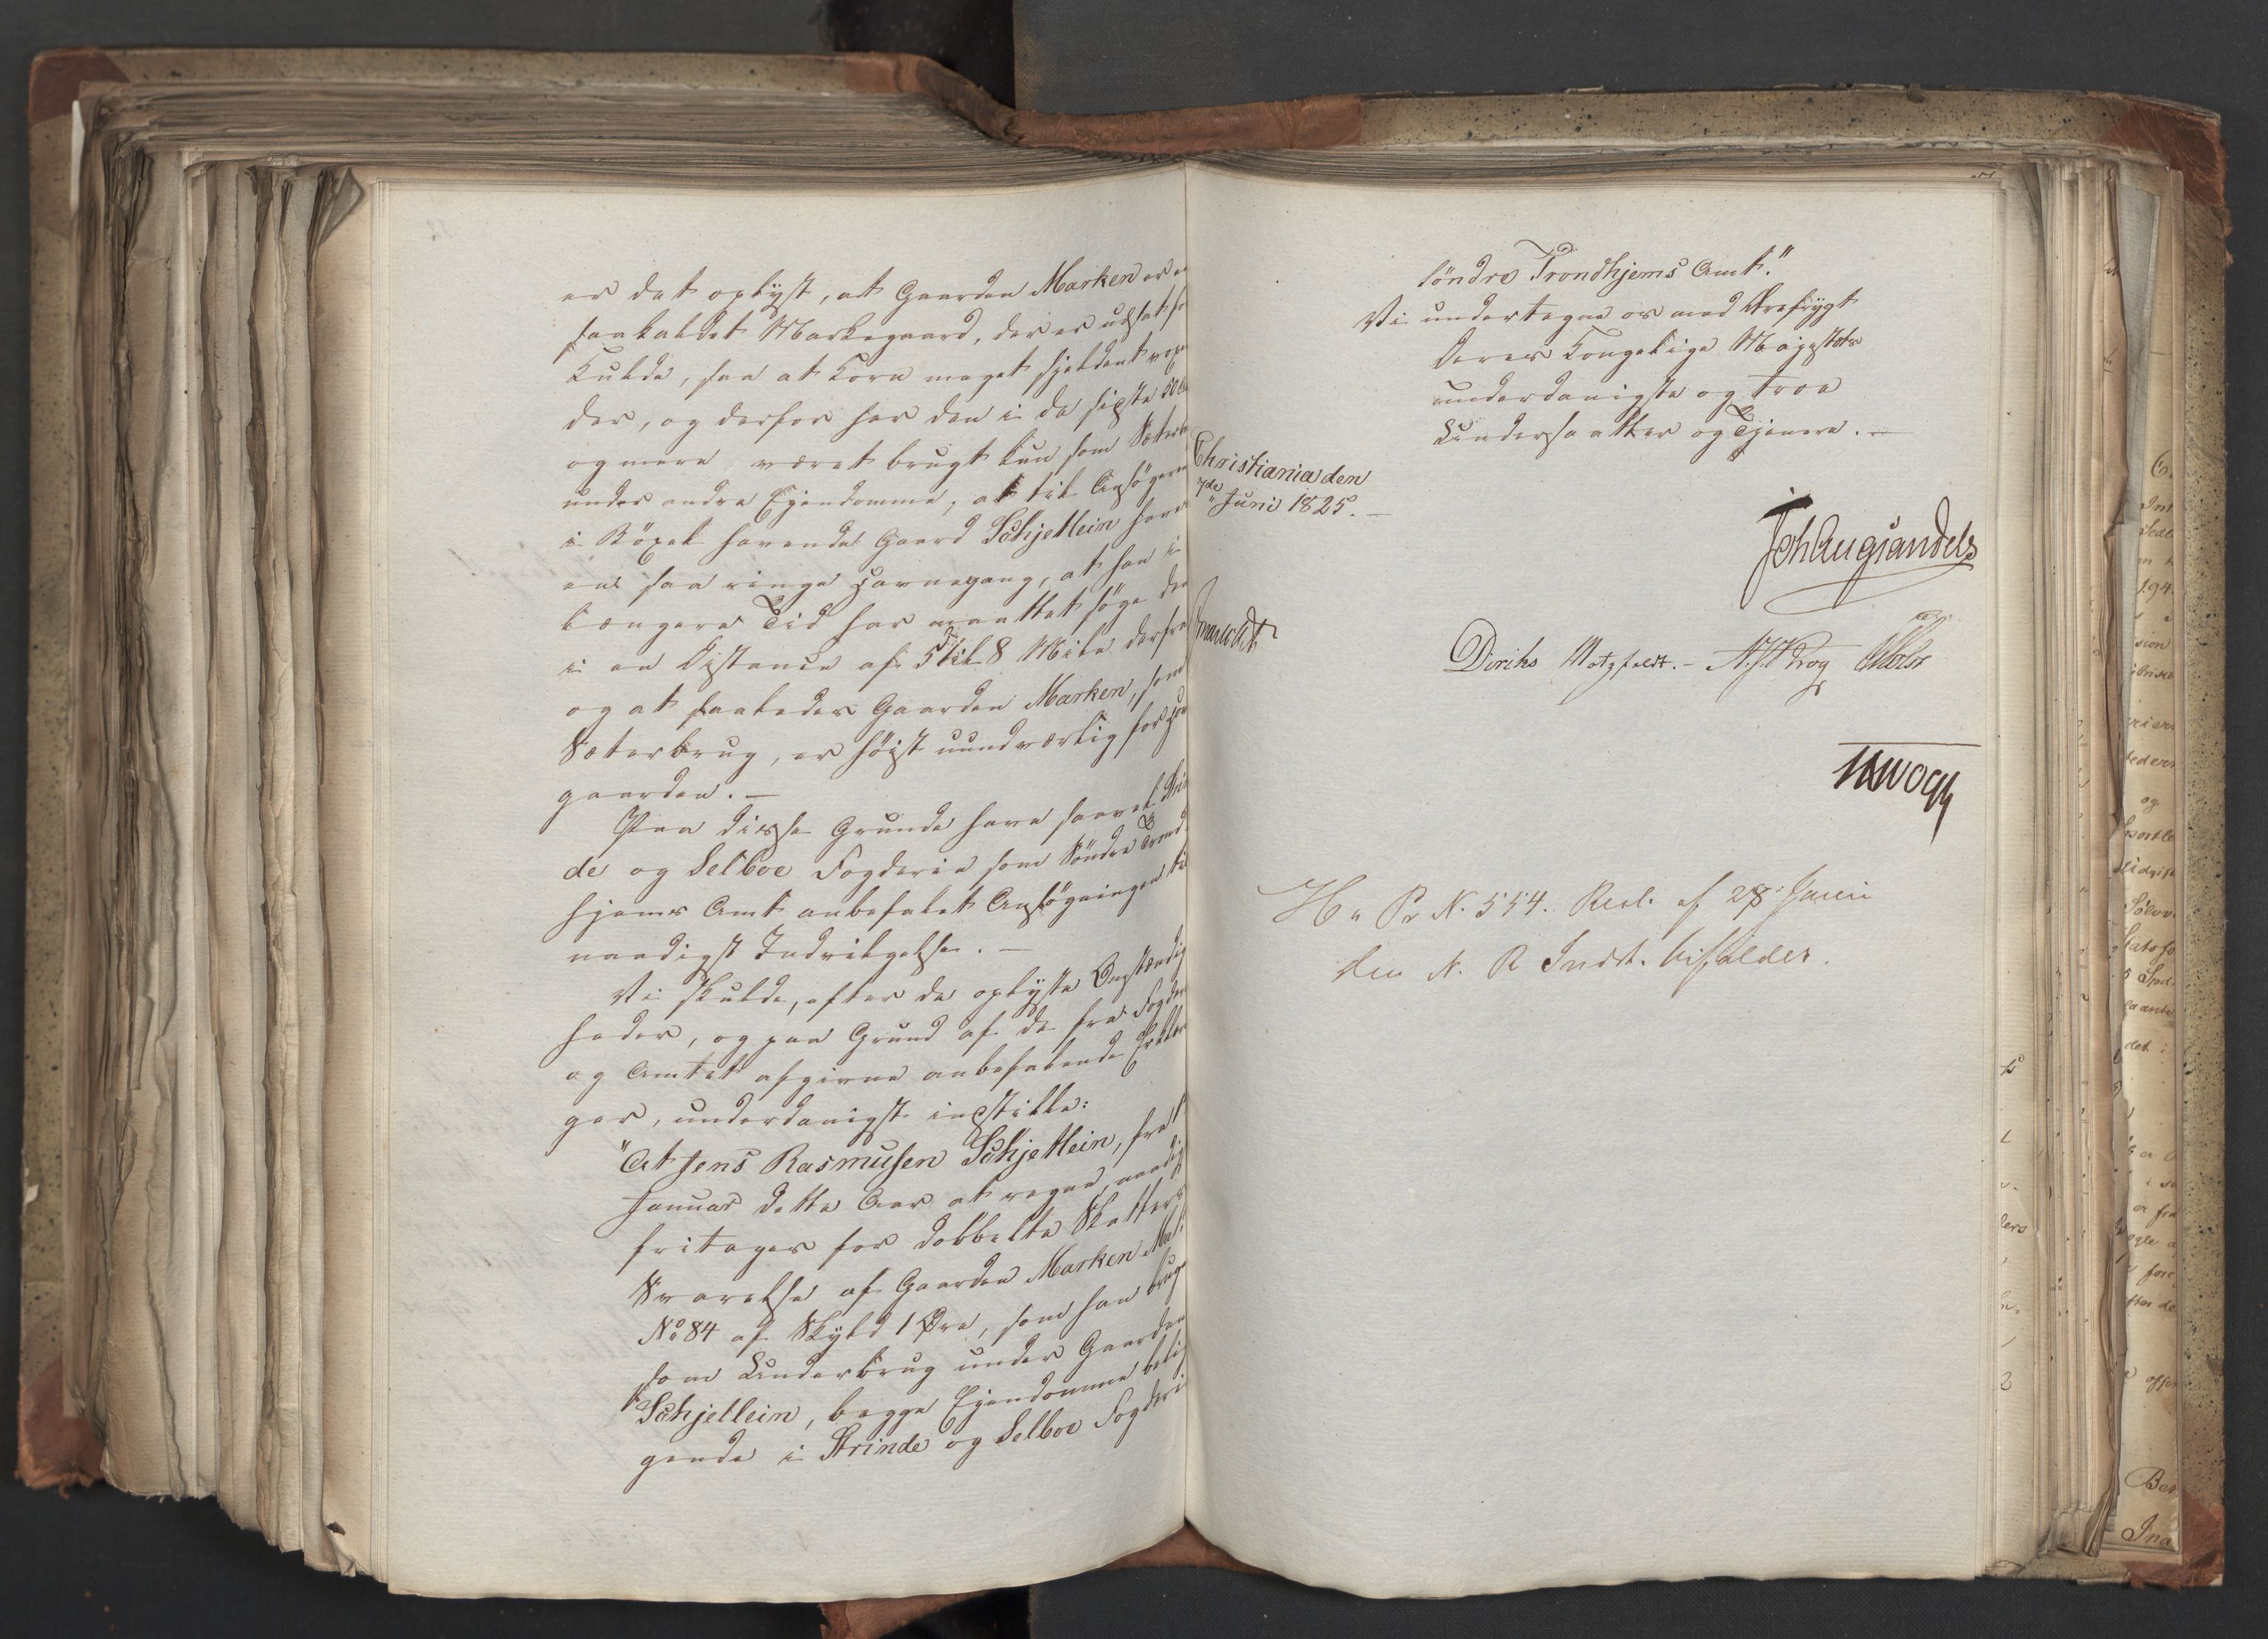 er det oplyst, at Gaarden Marken er e
saakaldet Markegaard, der er udsat for
Kulde, saa at Korn meget sjeldent voxe
der, og derfor har den i de sidste 50
og mere været brugt kun som Sæterb
under andre Ejendomme; at til Ansøgeren
i Bøxel havende Gaard Schjetlein haves
en saa ringe Havnegang, at han i
længere Tid har maattet søge den
i en Distance af 5 til 8 Mile derfra
og at saaledes Gaarden Marken, som
Sæterbrug, er høist uundværlig for H
gaarden. —
Paa disse Grunde have saavel Strin
de og Selboe Fogderie som Søndre Trond
hjems Amt anbefalet Ansøgningen til
naadigst Indvilgelse. —
Vi skulde, efter de oplyste Omstændig
heder, og paa Grund af de fra Fogder
og Amtet afgivne anbefalende Erklær
ger, underdanigst indstille:
"At Jens Rasmusen Schjetlein, fra 1
Januar dette Aar at regne, naadig
fritages for dobbelte Skatters
Svarelse af Gaarden Marken Mat
No 84 af Skyld 1 Øre, som han bruge
som Underbrug under Gaarden
Schjetlein, begge Ejendomme belig
gende i Strinde og Selboe Fogderi
söndre Trondhjems Amt."
Vi undertegne os med Ærefrygt
Deres Kongelige Majestets
underdanigste og troe
Undersaatter og Tjenere. —
Christiania den
7de Juni 1825. —
Joh Aug Sandels
Diriks Motzfeldt. — N. J. Krog
H " Pr N. 554. Resl. af 28 Junii
den N. R Indst. bifalder.